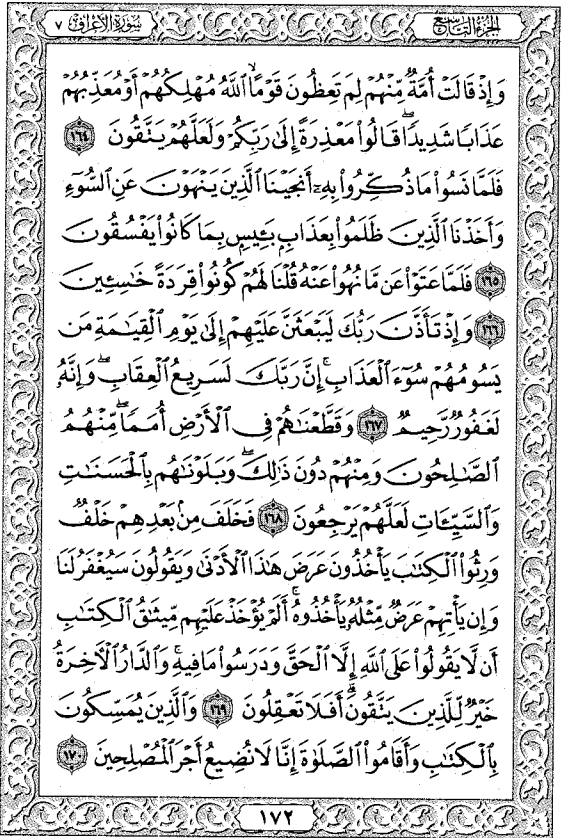 سُورَةُ الأَعْرَافِ ٧
الجُزْءُ التَّاسِعُ
وَإِذْ قَالَتْ أُمَّةٌ مِّنْهُمْ لِمَ تَعِظُونَ قَوْمًا ۙ اللَّهُ مُهْلِكُهُمْ أَوْ مُعَذِّبُهُمْ
عَذَابًا شَدِيدًا ۖ قَالُوا۟ مَعْذِرَةً إِلَىٰ رَبِّكُمْ وَلَعَلَّهُمْ يَتَّقُونَ ١٦٤
فَلَمَّا نَسُوا۟ مَا ذُكِّرُوا۟ بِهِۦٓ أَنجَيْنَا الَّذِينَ يَنْهَوْنَ عَنِ السُّوٓءِ
وَأَخَذْنَا الَّذِينَ ظَلَمُوا۟ بِعَذَابٍۭ بَـِٔيسٍۭ بِمَا كَانُوا۟ يَفْسُقُونَ
١٦٥ فَلَمَّا عَتَوْا۟ عَن مَّا نُهُوا۟ عَنْهُ قُلْنَا لَهُمْ كُونُوا۟ قِرَدَةً خَٰسِـِٔينَ
١٦٦ وَإِذْ تَأَذَّنَ رَبُّكَ لَيَبْعَثَنَّ عَلَيْهِمْ إِلَىٰ يَوْمِ الْقِيَٰمَةِ مَن
يَسُومُهُمْ سُوٓءَ الْعَذَابِ ۗ إِنَّ رَبَّكَ لَسَرِيعُ الْعِقَابِ ۖ وَإِنَّهُۥ
لَغَفُورٌ رَّحِيمٌ ١٦٧ وَقَطَّعْنَٰهُمْ فِى الْأَرْضِ أُمَمًا ۖ مِّنْهُمُ
الصَّٰلِحُونَ وَمِنْهُمْ دُونَ ذَٰلِكَ ۖ وَبَلَوْنَٰهُم بِالْحَسَنَٰتِ
وَالسَّيِّـَٔاتِ لَعَلَّهُمْ يَرْجِعُونَ ١٦٨ فَخَلَفَ مِنۢ بَعْدِهِمْ خَلْفٌ
وَرِثُوا۟ الْكِتَٰبَ يَأْخُذُونَ عَرَضَ هَٰذَا الْأَدْنَىٰ وَيَقُولُونَ سَيُغْفَرُ لَنَا
وَإِن يَأْتِهِمْ عَرَضٌ مِّثْلُهُۥ يَأْخُذُوهُ ۚ أَلَمْ يُؤْخَذْ عَلَيْهِم مِّيثَٰقُ الْكِتَٰبِ
أَن لَّا يَقُولُوا۟ عَلَى اللَّهِ إِلَّا الْحَقَّ وَدَرَسُوا۟ مَا فِيهِ ۗ وَالدَّارُ الْـَٔاخِرَةُ
خَيْرٌ لِّلَّذِينَ يَتَّقُونَ ۗ أَفَلَا تَعْقِلُونَ ١٦٩ وَالَّذِينَ يُمَسِّكُونَ
بِالْكِتَٰبِ وَأَقَامُوا۟ الصَّلَوٰةَ إِنَّا لَا نُضِيعُ أَجْرَ الْمُصْلِحِينَ ١٧٠
١٧٢